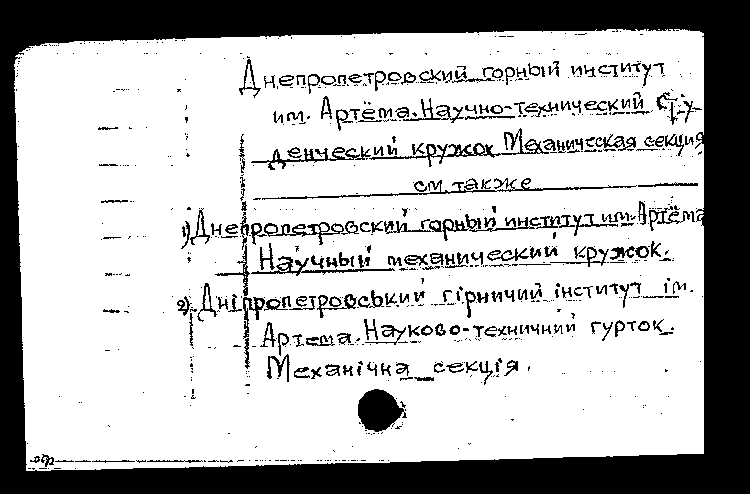 Днепропетровский горный институт
им. Артёма. Научно-технический сту-
денческий кружок Механическая секция
см. также
1) Днепропетровский горный институт им. Артёма
Научный механический кружок.
2) Дніпропетровський гірничий інститут ім.
Артема. Науково-технічний гурток.
Механічна секція.